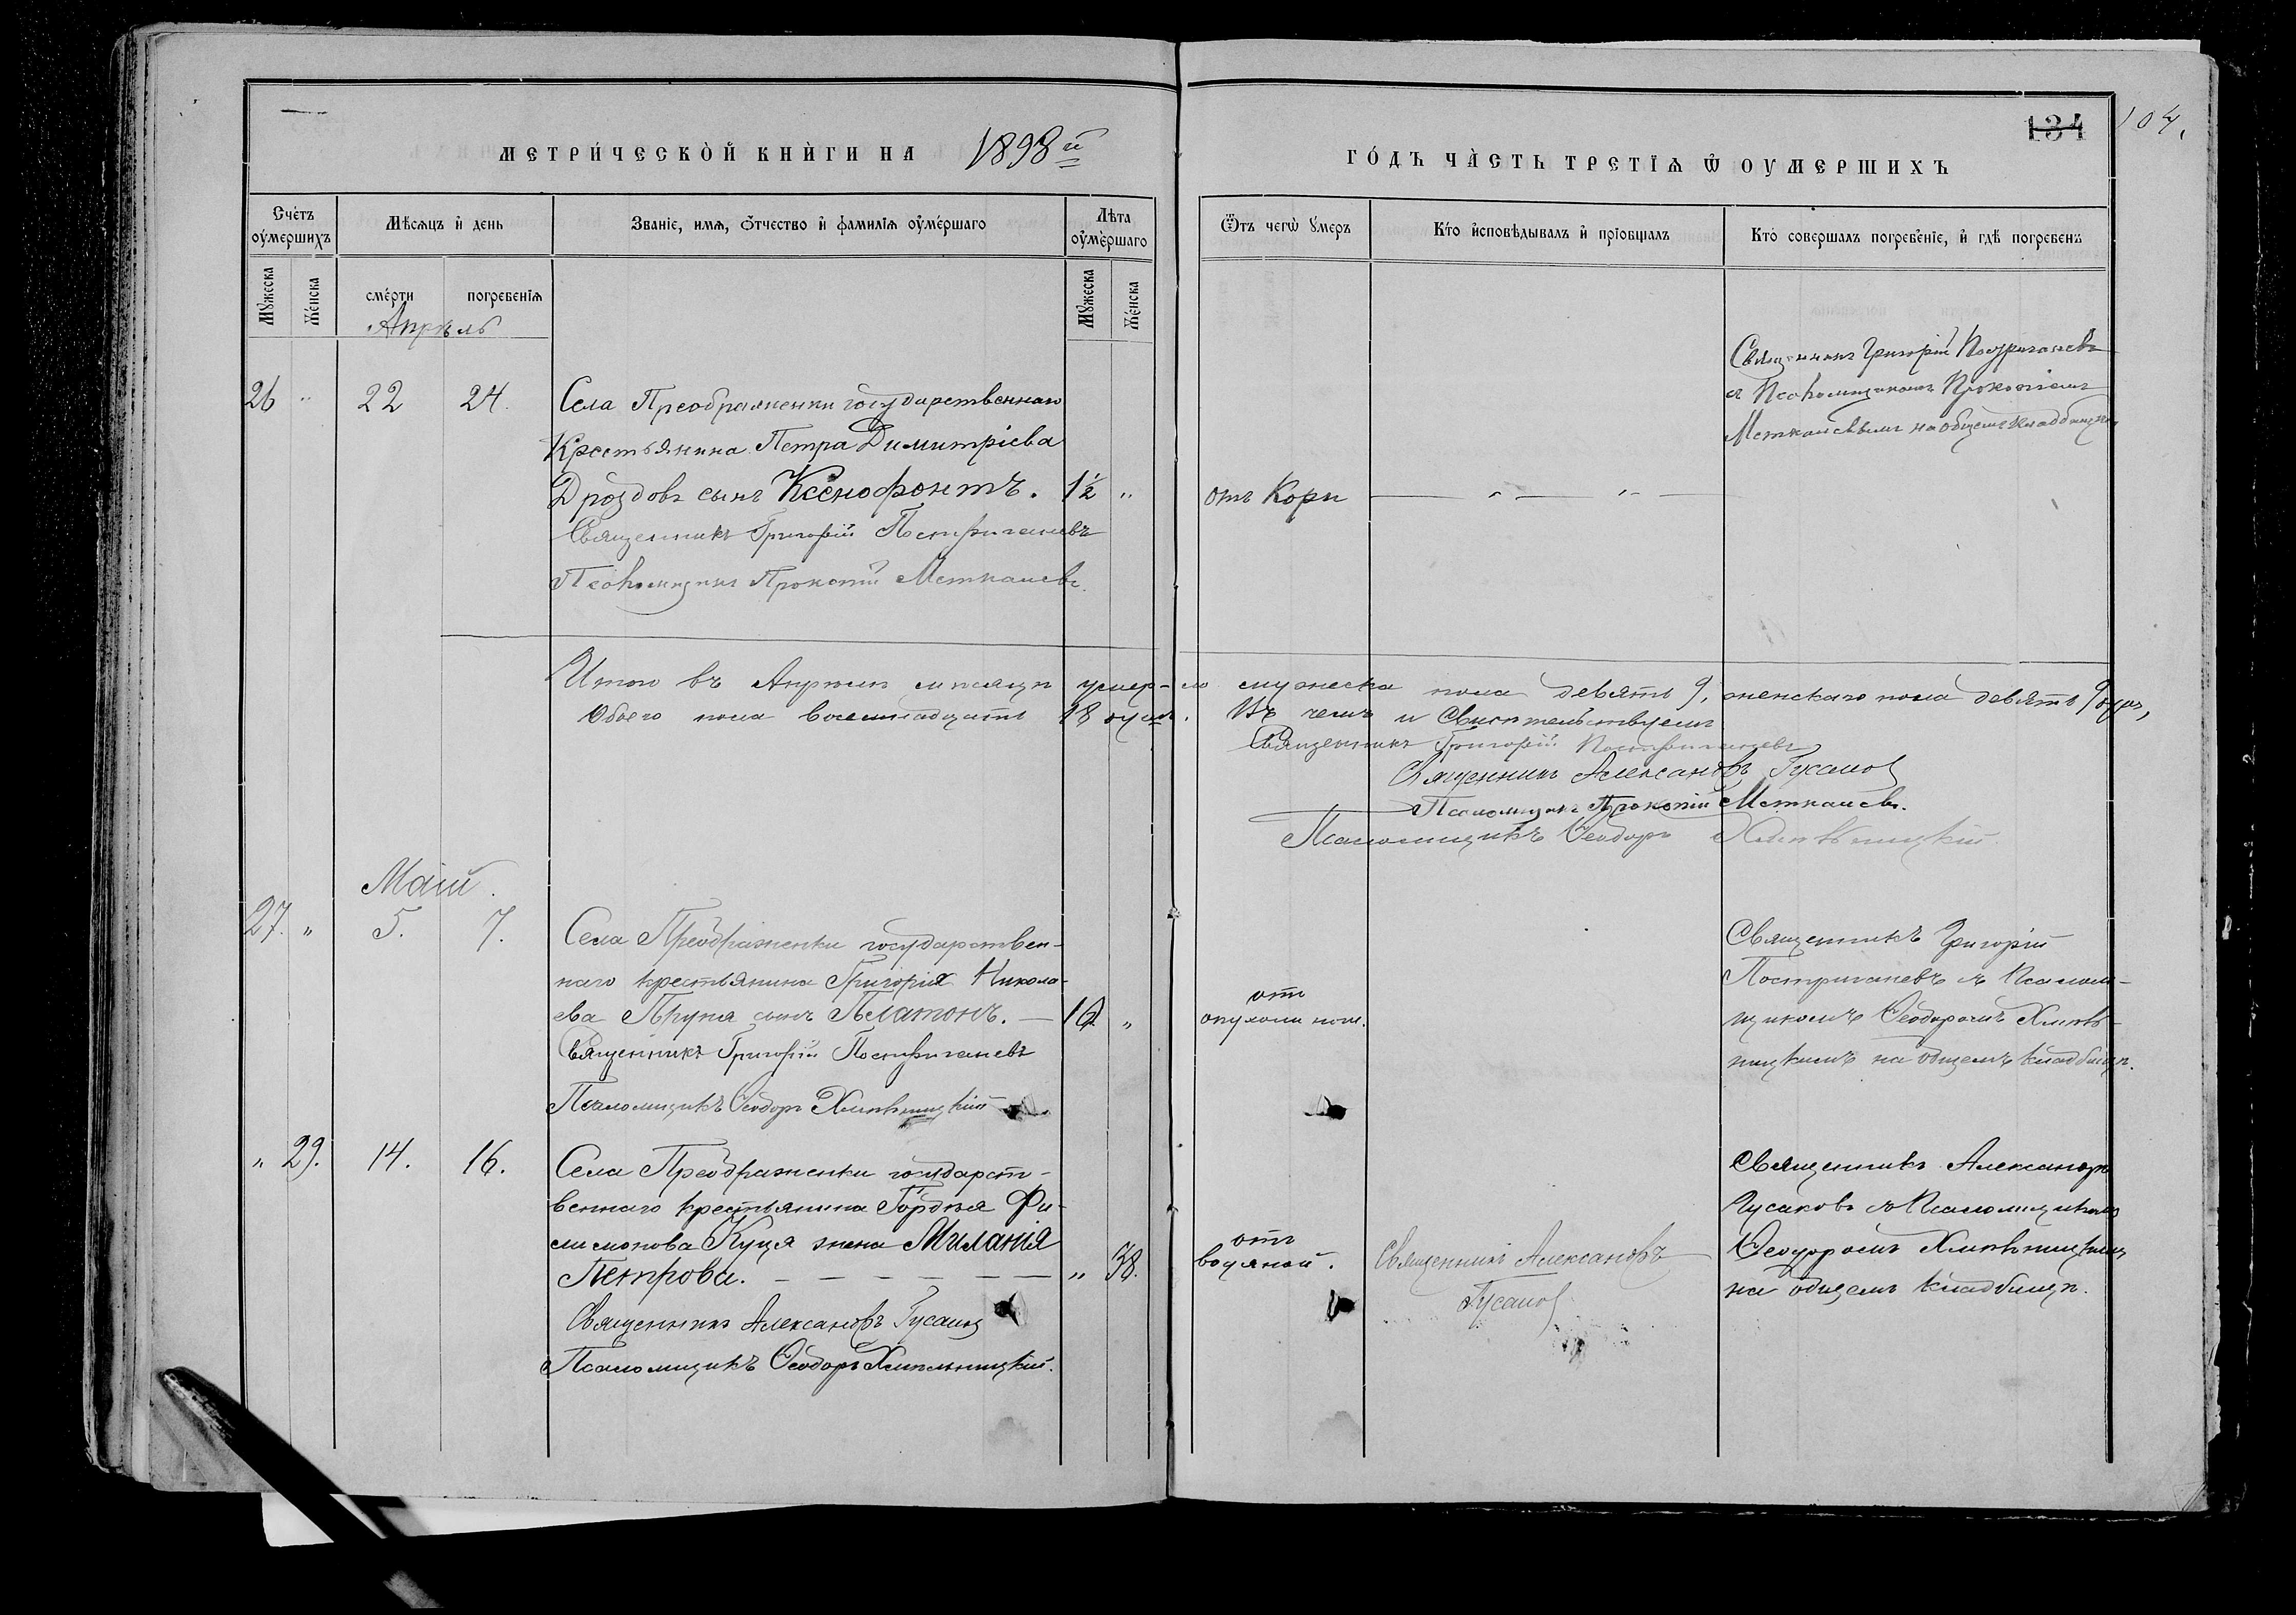 134
104.
МЕТРИ́ЧЕСКО̀Й КНЍГИ НА 1898й
ГО́ДЪ ЧА̀СТЬ ТРЕТІѦ Ѿ ОУМЕРШИХЪ
Счéтъ оу́мершихъ
Мѣсѧцъ и҆ день
Званіе, имѧ, ѻ҆тчество и҆ фамиліѧ оу҆ме́ршаго
Лѣта оу҆ме́ршаго
Ѿтъ чегѡ̀ ᲂу҆меръ
Кто̀ и҆сповѣдывалъ и҆ прїобщалъ
Кто̀ совершалъ погребе́ніе, и҆ гдѣ̀ погребенъ
Мꙋжеска
Же́нска
сме́рти
погребе́нїѧ
Мꙋжеска
Же́нска
Апрѣль
26 " 22 24.
Села Преображенки государственнаго
Крестьянина Петра Димитріева
Дроздовъ сынъ Ксенофонтъ. 1½ "
Священникъ Григорій Постригачевъ
Псаломщикъ Прокопій
отъ Кори
Священникъ Григорій Постригачевъ
съ Псаломщикомъ Прокопіемъ
на общемъ кладбищѣ
Итого въ Апрѣлѣ мѣсяцѣ умер-ло мужеска пола девять 9, женскаго пола девять 9 душъ,
Обоего пола восемнадцать 18 душъ. Въ чемъ и свидѣтельствуемъ
Священникъ Григорій Постригачевъ
Священникъ Александръ Гусаковъ
Псаломщикъ Прокопій
Псаломщикъ Ѳеодоръ Хмѣльницкій
Май.
27. " 5. 7.
Села Преображенки государствен-
наго крестьянина Григорія Никола-
ева сынъ Платонъ. — "
Священникъ Григорій Постригачевъ
Псаломщикъ Ѳеодоръ Хмѣльницкій
отъ
опухоли
Священникъ Григорій
Постригачевъ съ Псалом-
щикомъ Ѳеодоромъ Хмѣль-
ницкимъ на общемъ кладбищѣ.
" 29. 14. 16.
Села Преображенки государст-
веннаго крестьянина Гордѣя Фи-
лимонова Куця жена Миланія
Петрова. — — — — — — " 38.
Священникъ Александръ Гусаковъ
Псаломщикъ Ѳеодоръ Хмѣльницкій.
отъ
водяной.
Священникъ Александръ
Гусаковъ
Священникъ Александръ
Гусаковъ съ Псаломщикомъ
Ѳеодоромъ Хмѣльницкимъ
на общемъ кладбищѣ.